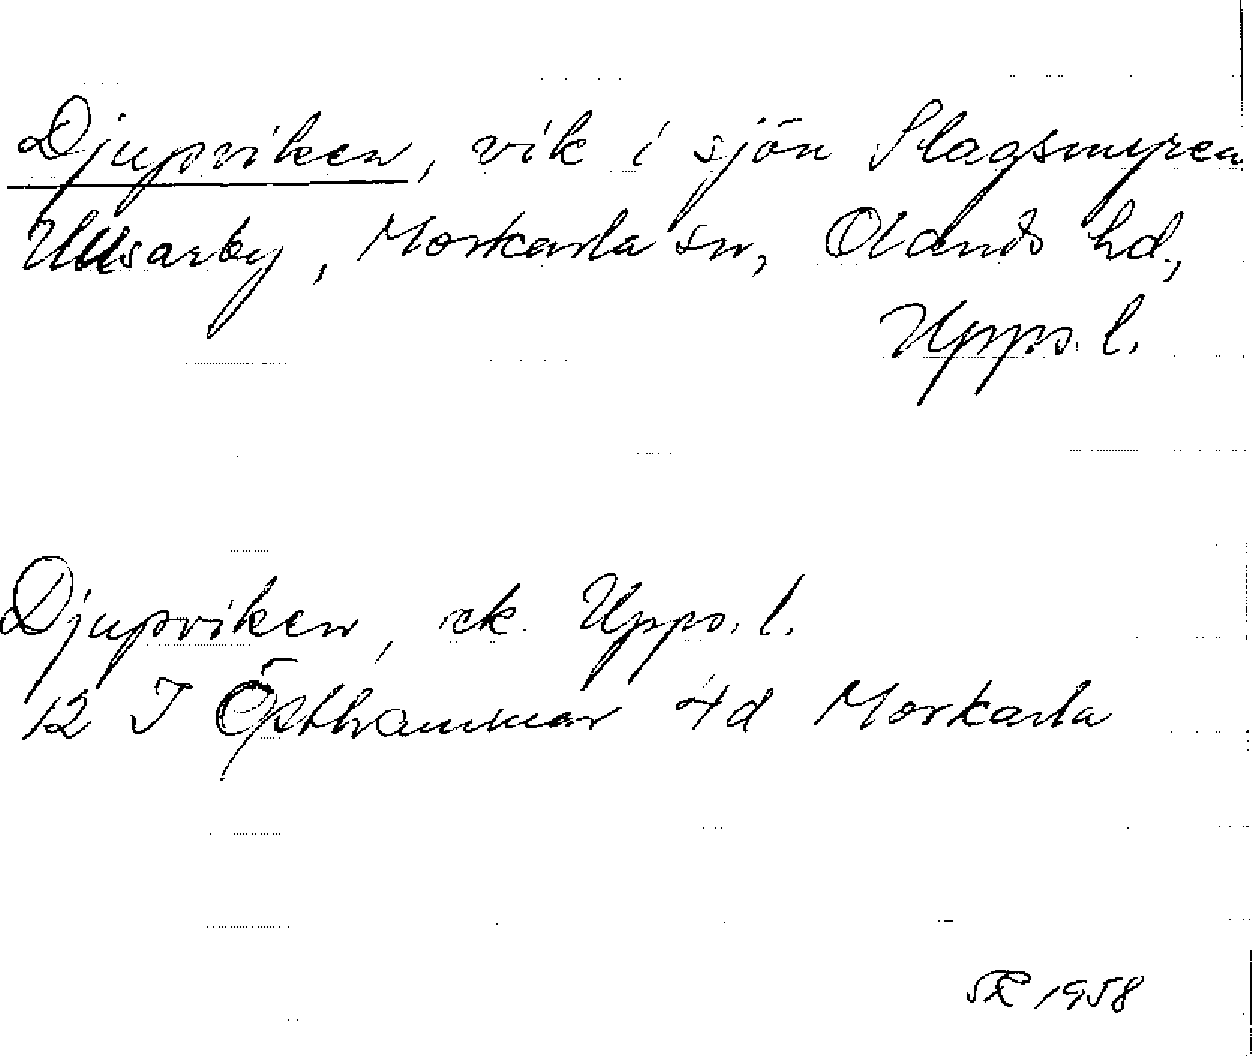 Djupviken, vik i sjön Slagsmyren
Ullsarby, Morkarla sn, Olands hd.,
Upps. l.
Djupviken, ek. Upps. l.
12 I Östhammar 4d Morkarla
1958